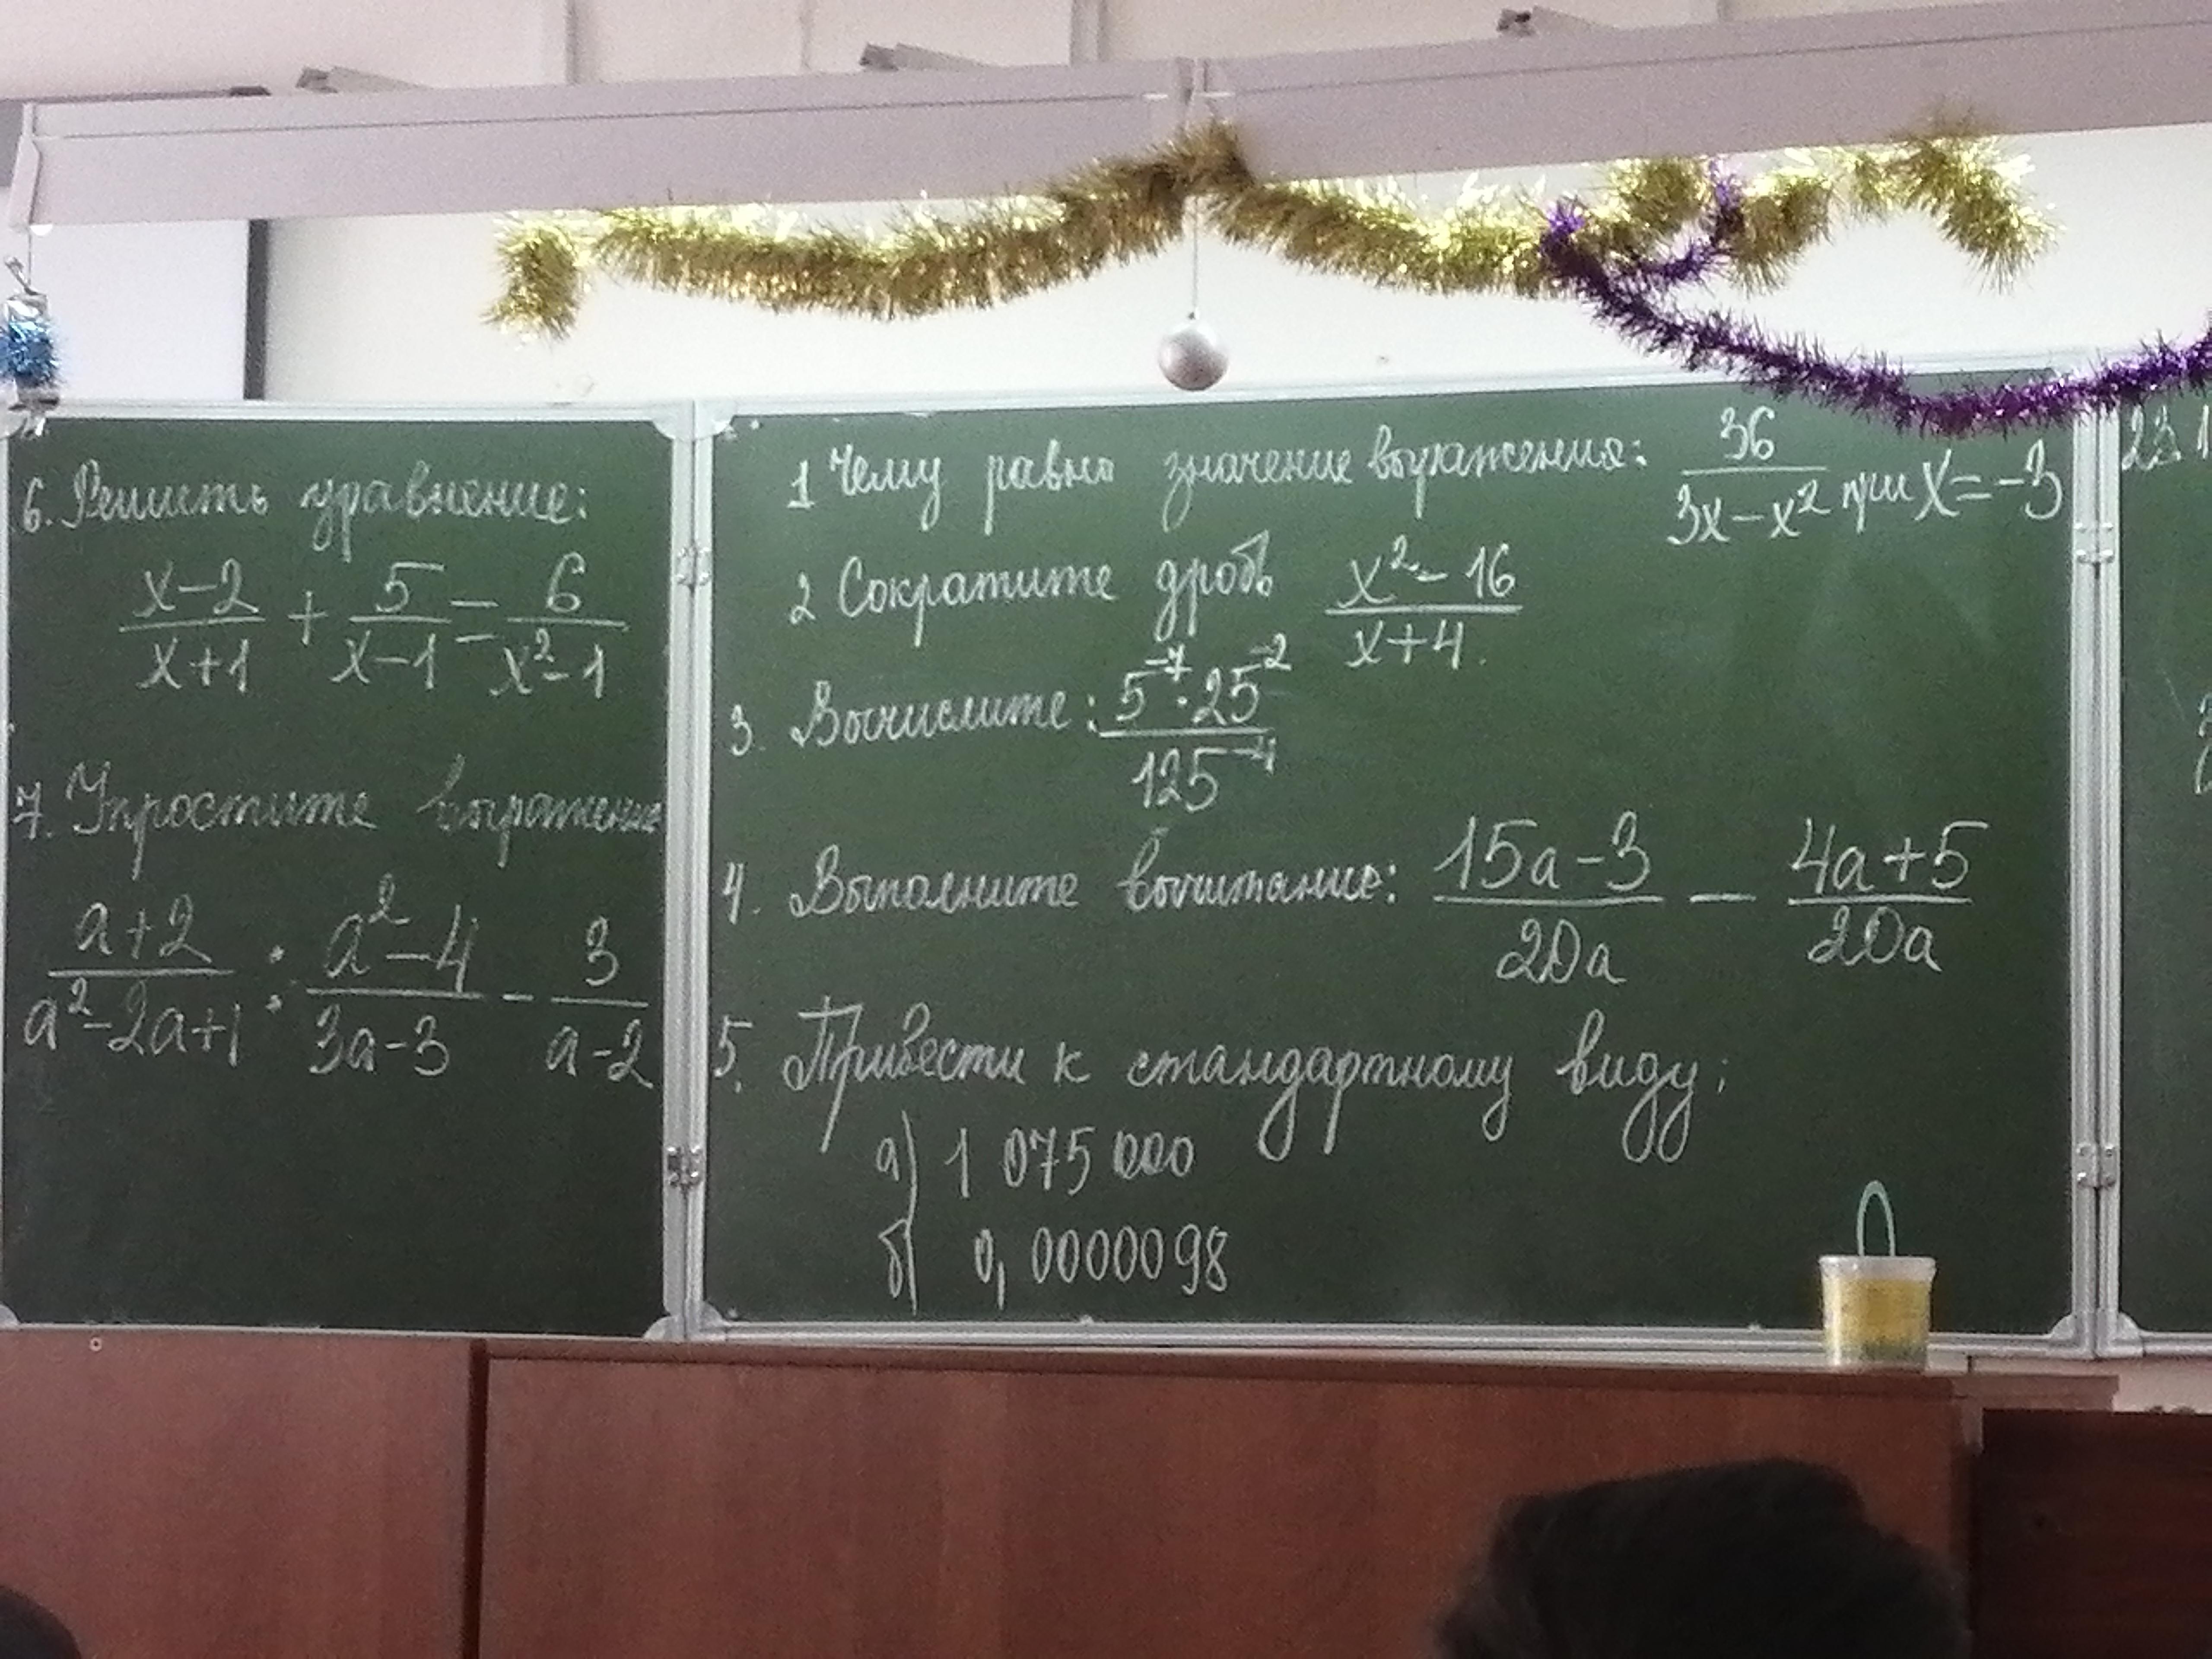 6. Решить уравнение:
(x-2)/(x+1) + 5/(x-1) = 6/(x²-1)
7. Упростите выражение
(a+2)/(a²-2a+1) : (a²-4)/(3a-3) - 3/(a-2)
1 Чему равно значение выражения: 36/(3x-x²) при x=-3
2 Сократите дробь (x²-16)/(x+4).
3. Вычислите: (5⁻⁷·25⁻²)/125⁻⁴
4. Выполните вычитание: (15a-3)/20a - (4a+5)/20a
5. Привести к стандартному виду:
а) 1 075 000
б) 0,0000098